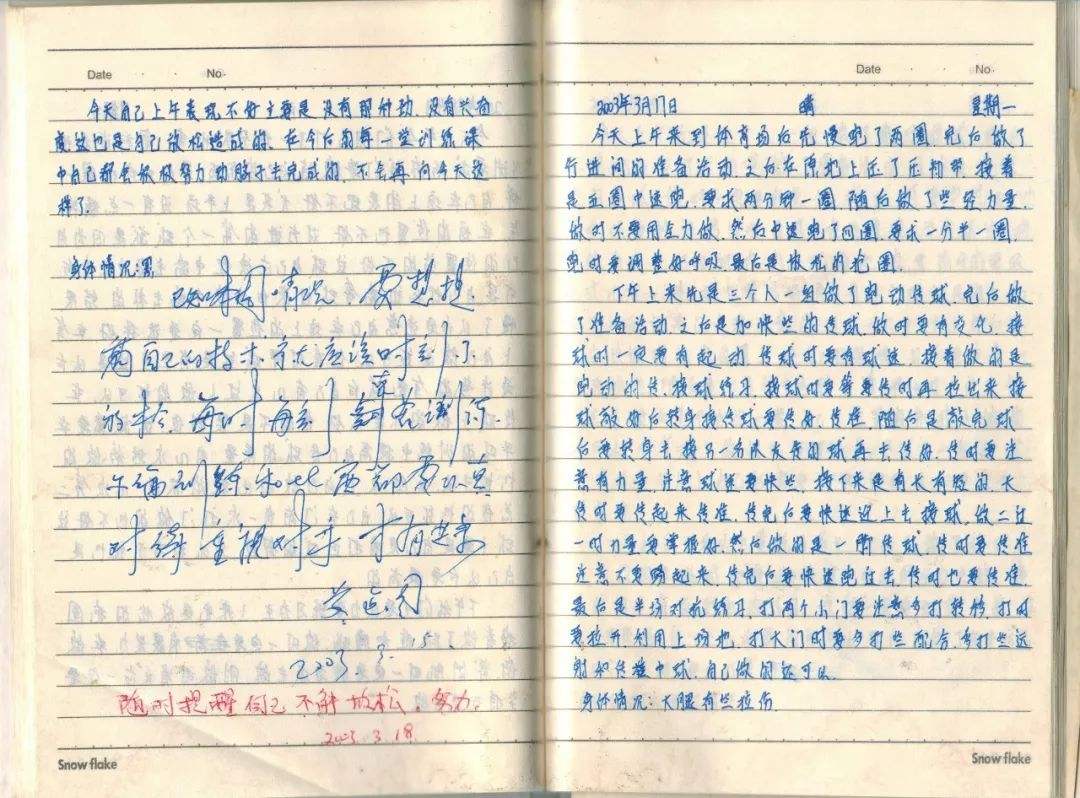 Date · · No·
今天自己上午表现不好主要是没有那种劲,没有兴奋
度,这也是自己放松造成的,在今后的每一些训练课
中自己都会积极努力动脑子去完成的,不会再向今天这
样了.
身体情况:累.
要想提
高自己的技术
每时每刻
训练和比赛都要认真
对待重视对手 才有进步
2003. 3. 15.
随时提醒自己 不能放松,努力.
2003. 3. 18
Snow flake
Date · · No·
2003年3月17日 晴 星期一
今天上午来到体育场后先慢跑了两圈,完后做了
行进间的准备活动,之后在原地上压了压韧带,接着
是五圈中速跑,要求两分钟一圈,随后做了些轻力量,
做时不要用全力做,然后中速跑了四圈,要求一分半一圈,
跑时要调整好呼吸,最后是放松的 圈.
下午上来先是三个人一组做了跑动传球,完后做
了准备活动,之后是加快些的传球,做时要有变化,接
球时一定要有起动,传球时要有球速,接着做的是
跑动的传、接球练习,接球时要等要传时再拉出来接
球敲好后转身接传球要传好,传准,随后是敲完球
后要转身去接另一分队友传的球再去传好,传时要注
意有力量,注意球速要快些,接下来是有长有短的,长
传时要传起来传准,传完后要快速迎上去接球,做二过
一时力量要掌握好,然后做的是一脚传球,传时要传准
注意不要踢起来,传完后要快速跑过去,传时也要传准,
最后是半场对抗练习,打两个小门要注意多打转移,打时
要拉开利用上场地,打大门时要多打些配合,多打些远
射和传接中球,自己做的还可以.
身体情况:大腿有些拉伤.
Snow flake